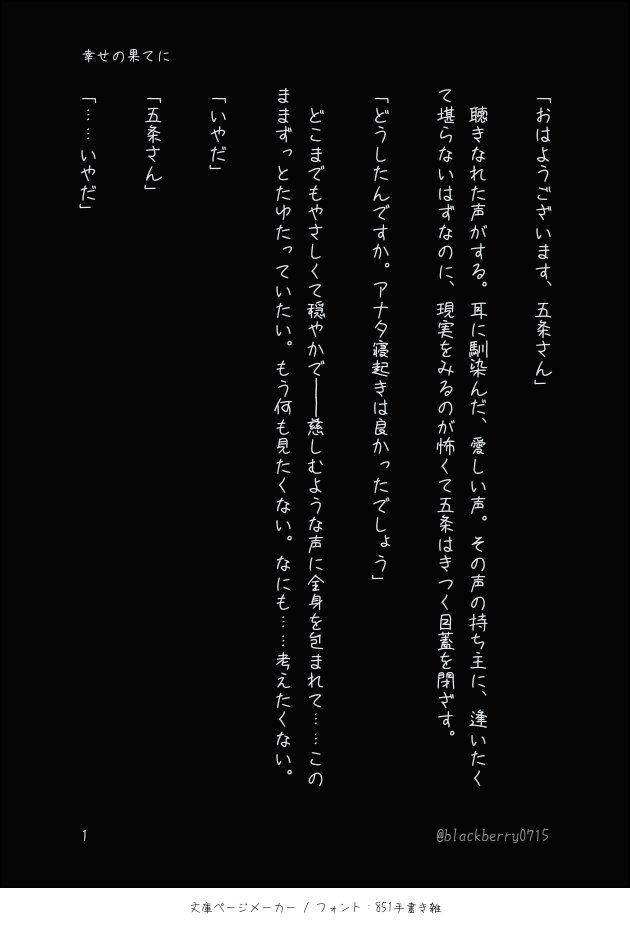 幸せの果てに
「おはようございます、五条さん」
　聴きなれた声がする。耳に馴染んだ、愛しい声。その声の持ち主に、逢いたく
て堪らないはずなのに、現実をみるのが怖くて五条はきつく目蓋を閉ざす。
「どうしたんですか。アナタ寝起きは良かったでしょう」
　どこまでもやさしくて穏やかで――慈しむような声に全身を包まれて……この
ままずっとたゆたっていたい。もう何も見たくない。なにも……考えたくない。
「いやだ」
「五条さん」
「……いやだ」
1
@blackberry0715
文庫ページメーカー / フォント：851手書き雑